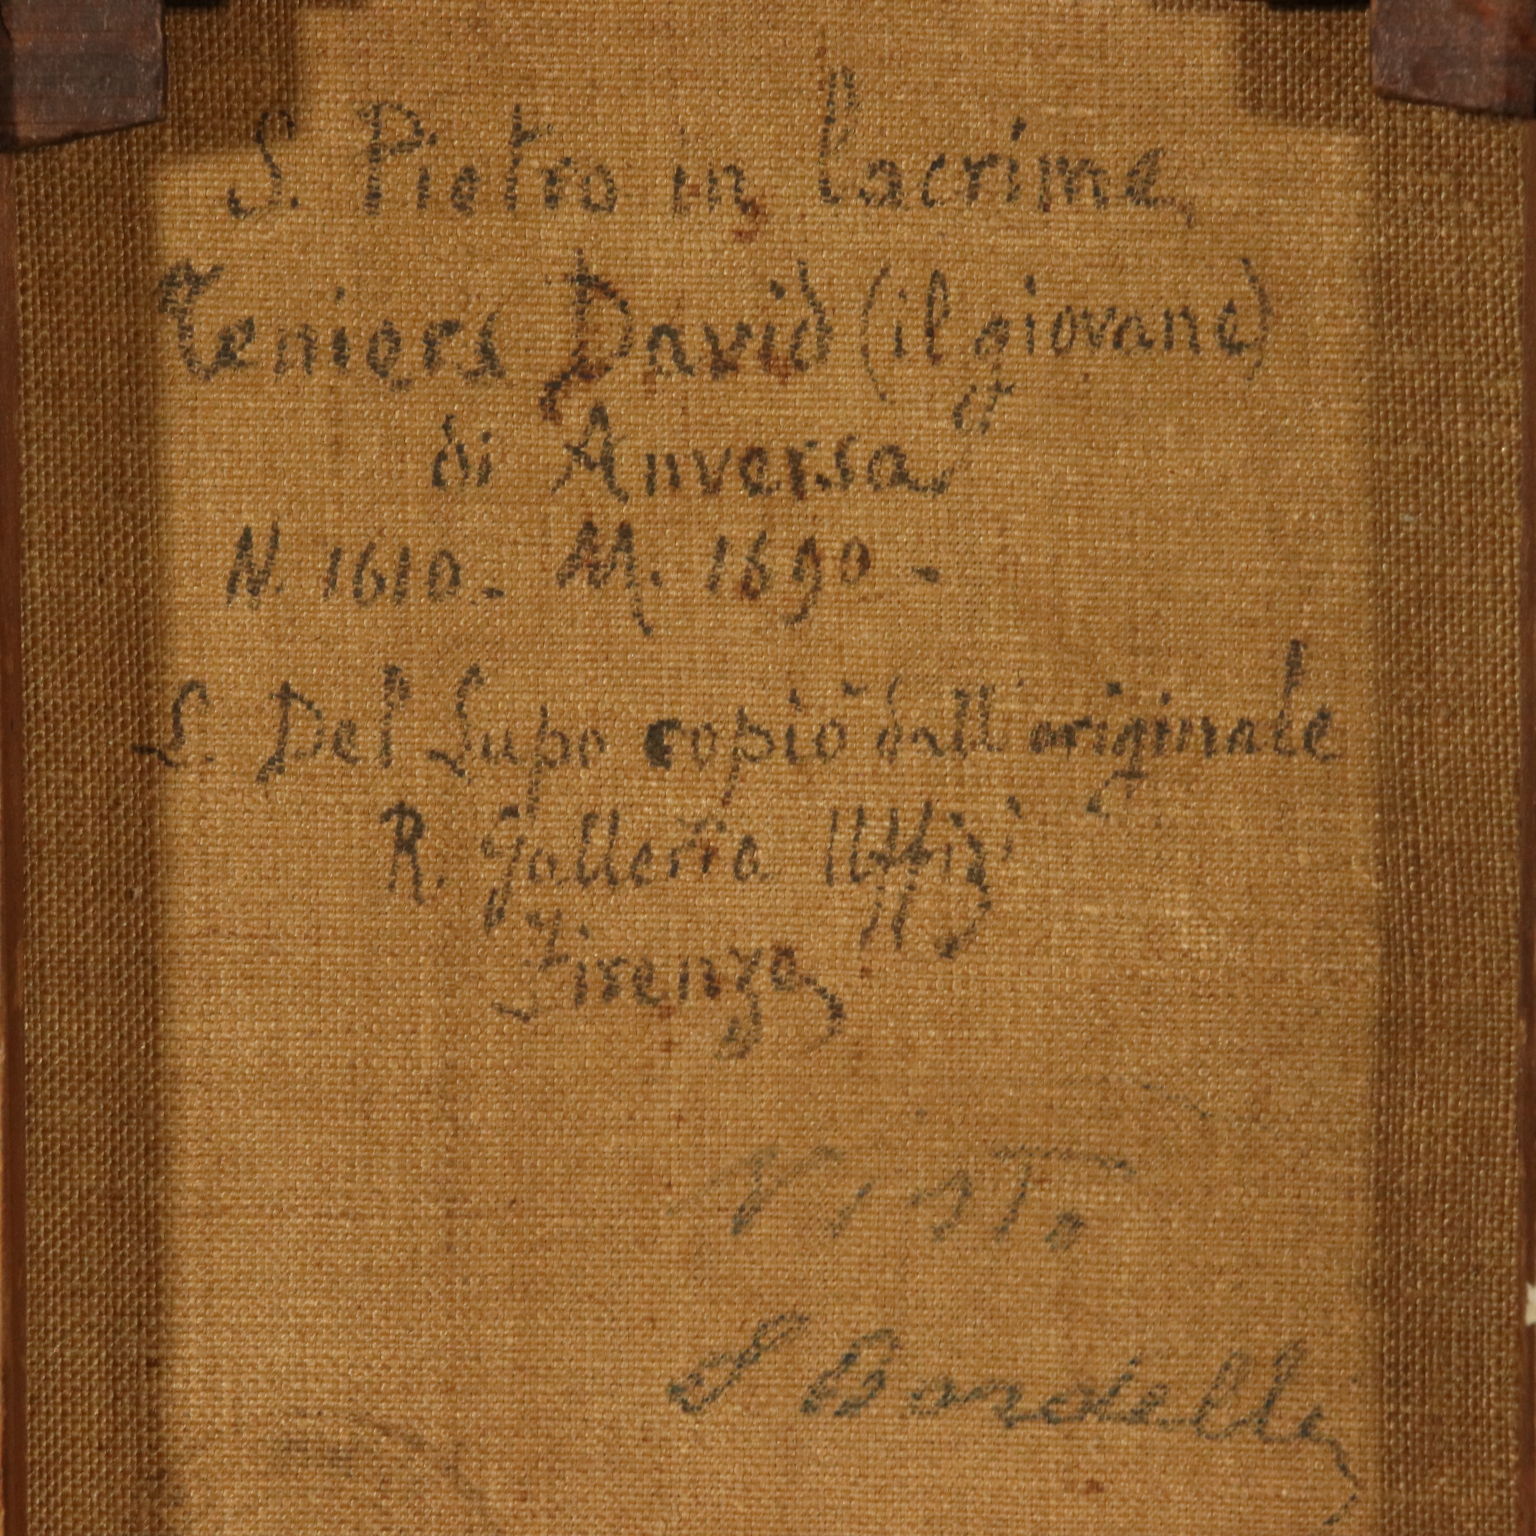 S. Pietro in lacrime
Teniers David (il giovane)
di Anversa
N. 1610. M. 1690.-
L. Del Lupo copiò dall'originale
R. Galleria Uffizi
Firenze
Visto